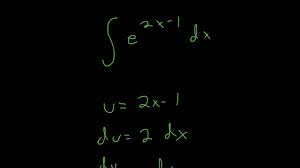 ∫ e^{2x-1} dx
u = 2x-1
du = 2 dx